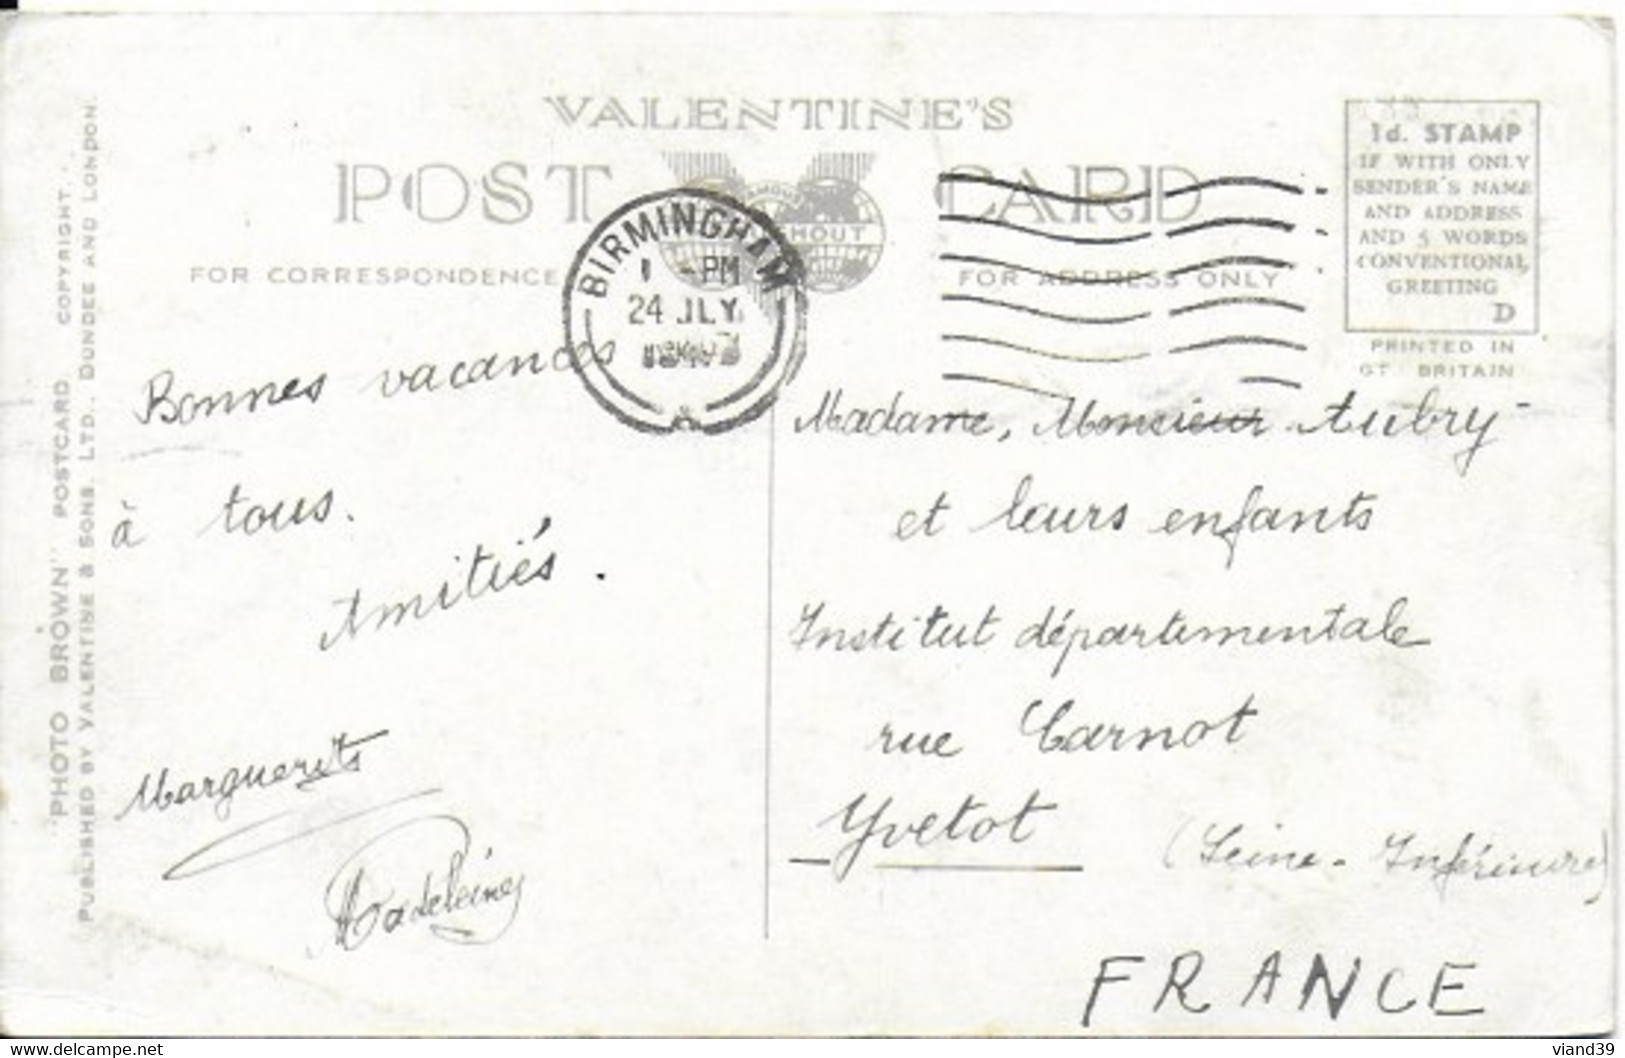 VALENTINE'S
POST CARD
FAMOUS
FOR CORRESPONDENCE
FOR ADDRESS ONLY
BIRMINGHAM
1 - PM
24 JLY
1d. STAMP
IF WITH ONLY
SENDER'S NAME
AND ADDRESS
AND 5 WORDS
CONVENTIONAL
GREETING
D
PRINTED IN
GT. BRITAIN
"PHOTO BROWN" POSTCARD. COPYRIGHT.
PUBLISHED BY VALENTINE & SONS, LTD., DUNDEE AND LONDON.
Bonnes vacances
à tous.
Amitiés.
Marguerite
Madeleine
Madame, Monsieur Aubry
et leurs enfants
Institut départementale
rue Carnot
Yvetot
(Seine-Inférieure)
FRANCE
viand39
www.delcampe.net